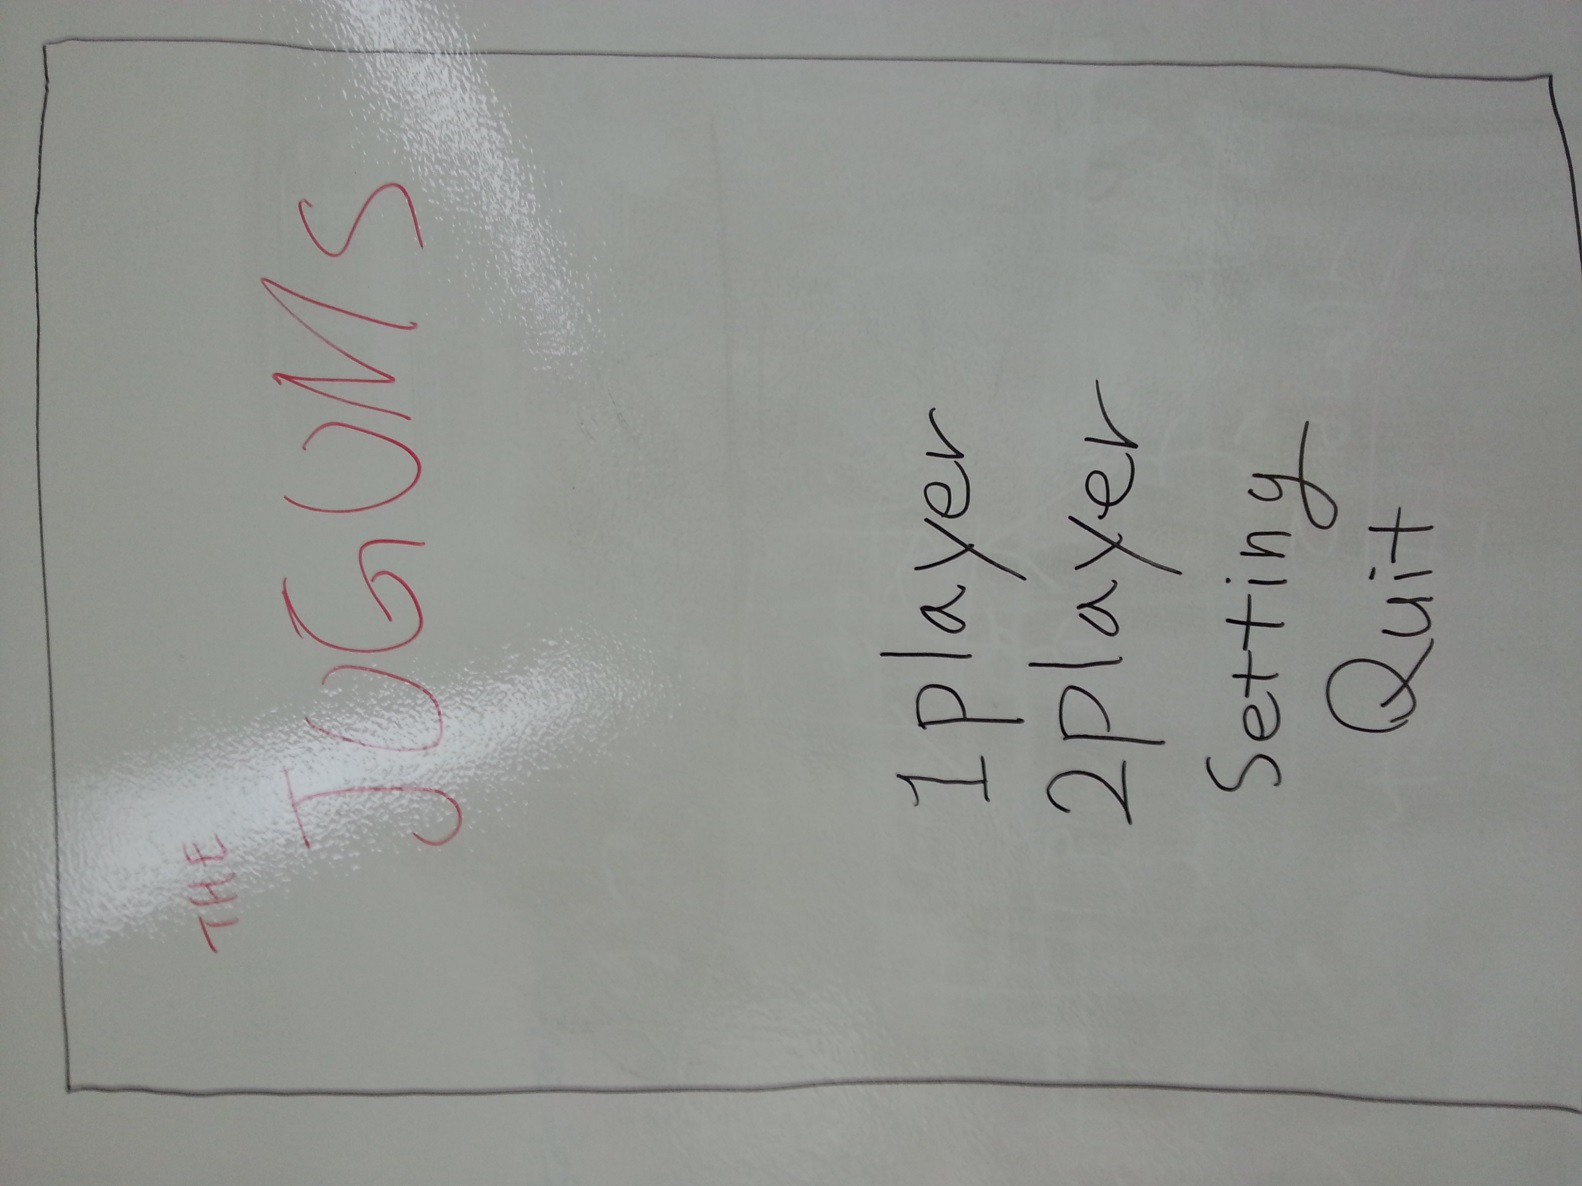 THE
JOGUMS
1 player
2 player
Setting
Quit